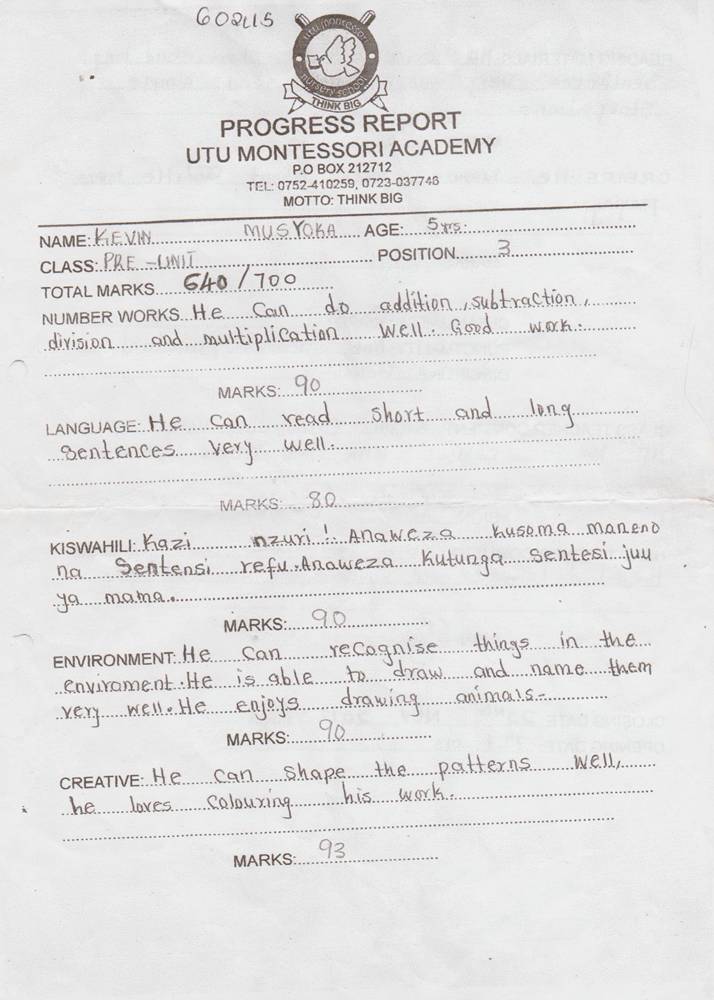 602115
utu montessori
nursery school
THINK BIG
PROGRESS REPORT
UTU MONTESSORI ACADEMY
P.O BOX 212712
TEL: 0752-410259, 0723-037746
MOTTO: THINK BIG
NAME: KEVIN MUSYOKA AGE: 5yrs.
CLASS: PRE-UNIT POSITION 3
TOTAL MARKS 640/700
NUMBER WORKS He can do addition, subtraction,
division and multiplication well. Good work.
MARKS: 90
LANGUAGE: He can read short and long
sentences very well.
MARKS: 80
KISWAHILI: Kazi nzuri! Anaweza kusoma maneno
na Sentensi refu. Anaweza kutunga sentesi juu
ya mama.
MARKS: 90
ENVIRONMENT: He can recognise things in the
enviroment. He is able to draw and name them
very well. He enjoys drawing animals-
MARKS: 90
CREATIVE: He can shape the patterns well,
he loves colouring his work.
MARKS: 93